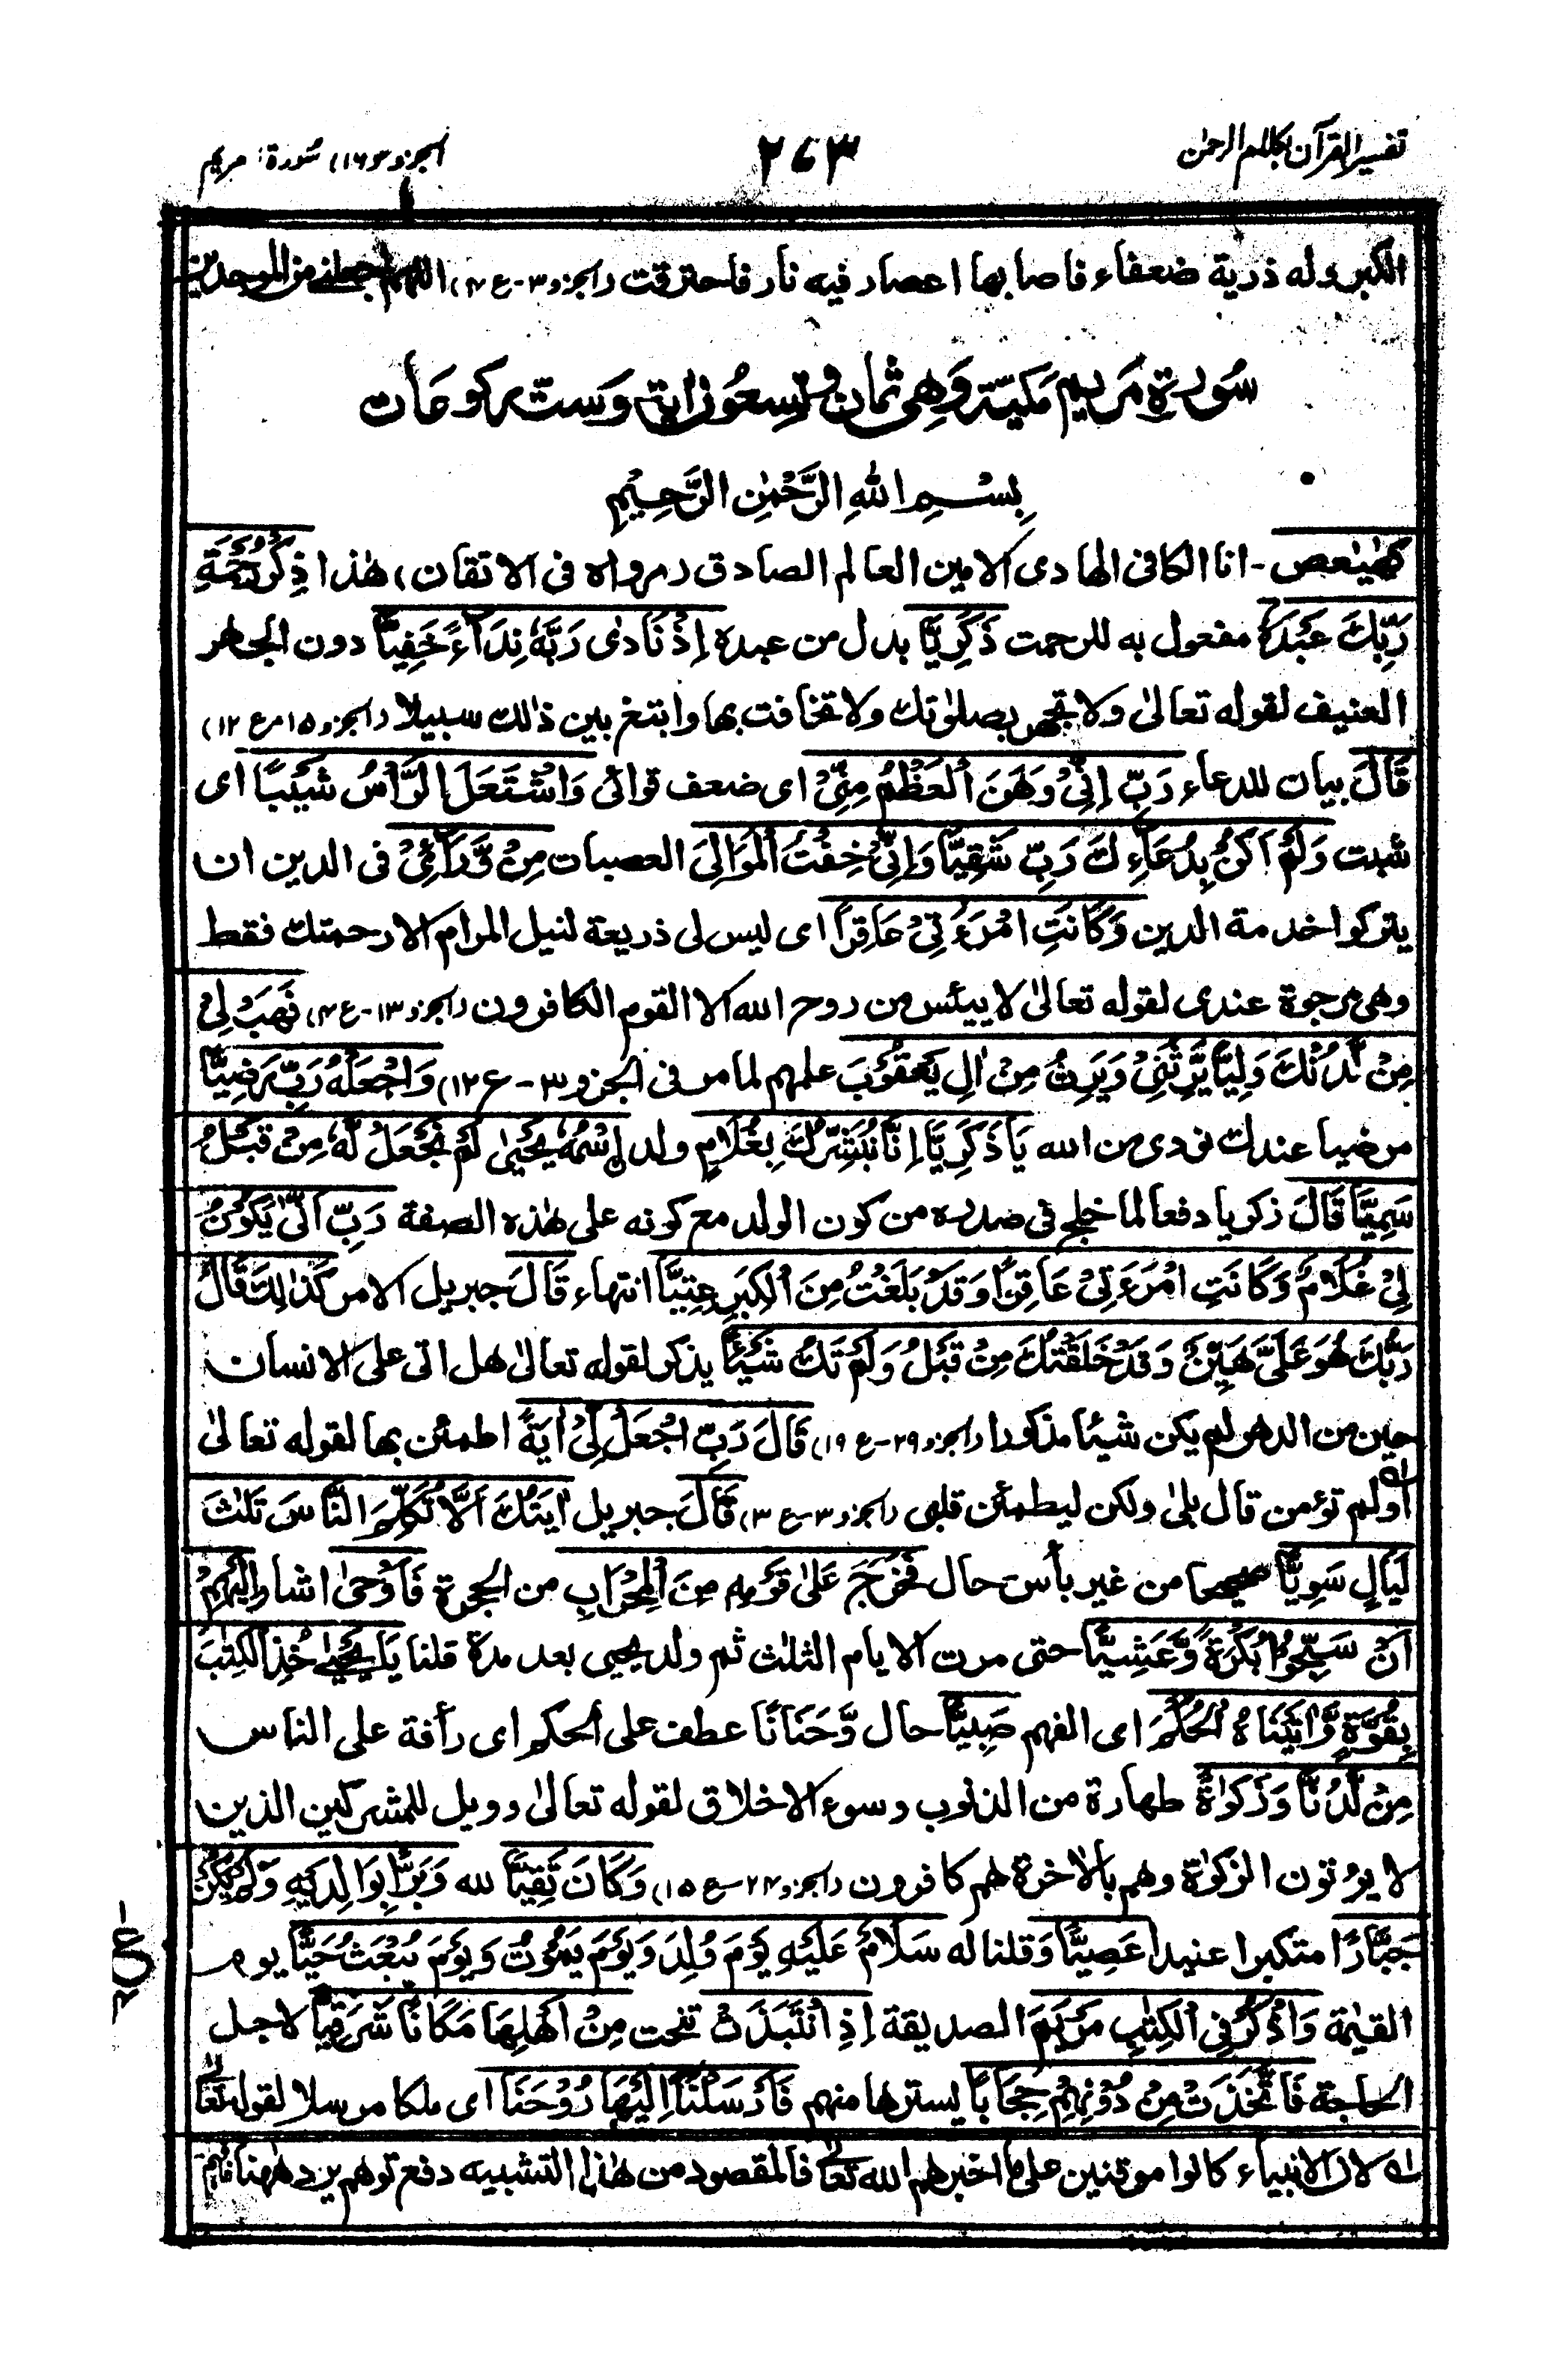 تفسير القرآن بكلام الرحمن
٢٦٣
الجزو ١٦) سورة: مريم
الكبر وله ذرية ضعفاء فاصابها اعصار فيه نار فاحترقت (الجزو ٣-ع ٤) اللهم اجعلنى من الموحدين
سُورة مَريم مَكيّة وَهى ثمان وتسعُون اٰية وَست ركوعات
بِسْـــمِ اللهِ الرَّحْمٰنِ الرَّحِيْمِ
كٓهٰيٰعص - انا الكافى الهادى الامين العالم الصادق (رواه فى الاتقان) هٰذا ذِكْرُ رَحْمَةِ
رَبِّكَ عَبْدَهٗ مفعول به للرحمت زَكَرِيَّا بدل من عبده اِذْ نَادٰى رَبَّهٗ نِدَآءً خَفِيًّا دون الجهر
العنيف لقوله تعالىٰ ولا تجهر بصلوٰتك ولا تخافت بها وابتغ بين ذٰلك سبيلا (الجزو ١٥ ع ١٢)
قَالَ بيان للدعاء رَبِّ اِنِّىْ وَهَنَ الْعَظْمُ مِنِّىْ اى ضعف قوائى وَاشْتَعَلَ الرَّاْسُ شَيْبًا اى
شبت وَلَمْ اَكُنْ بِدُعَآءِكَ رَبِّ شَقِيًّا وَاِنِّىْ خِفْتُ الْمَوَالِىَ العصبات مِنْ وَّرَآءِىْ فى الدين ان
يتركوا خدمة الدين وَكَانَتِ امْرَءَتِىْ عَاقِرًا اى ليس لى ذريعة لنيل المرام الا رحمتك فقط
وهى مرجوة عندى لقوله تعالىٰ لا ييئس من روح الله الا القوم الكافرون (الجزو ١٣-ع ٤) فَهَبْ لِىْ
مِنْ لَّدُنْكَ وَلِيًّا يَّرِثُنِىْ وَيَرِثُ مِنْ اٰلِ يَعْقُوْبَ علمهم لما مر فى الجزو ٣-ع ١٢) وَاجْعَلْهُ رَبِّ رَضِيًّا
مرضيا عندك نودى من الله يَا زَكَرِيَّا اِنَّا نُبَشِّرُكَ بِغُلَامٍ ولد اِسْمُهٗ يَحْيٰى لَمْ نَجْعَلْ لَّهٗ مِنْ قَبْلُ
سَمِيًّا قَالَ زكريا دفعا لما خلج فى صدره من كون الولد مع كونه على هٰذه الصفة رَبِّ اَنّٰى يَكُوْنُ
لِىْ غُلَامٌ وَّكَانَتِ امْرَءَتِىْ عَاقِرًا وَقَدْ بَلَغْتُ مِنَ الْكِبَرِ عِتِيًّا انتهاء قَالَ جبريل الامر كَذٰلِكَ قَالَ
رَبُّكَ هُوَ عَلَىَّ هَيِّنٌ وَقَدْ خَلَقْتُكَ مِنْ قَبْلُ وَلَمْ تَكُ شَيْئًا يذكر لقوله تعالىٰ هل اتى على الانسان
حين من الدهر لم يكن شيئا مذكورا (الجزو ٢٩-ع ١٩) قَالَ رَبِّ اجْعَلْ لِّىْ اٰيَةً اطمئن بها لقوله تعالىٰ
اولم تؤمن قال بلىٰ ولكن ليطمئن قلبى (الجزو ٣-ع ٣) قَالَ جبريل اٰيَتُكَ اَلَّا تُكَلِّمَ النَّاسَ ثَلٰثَ
لَيَالٍ سَوِيًّا صحيحا من غير بأس حال فَخَرَجَ عَلٰى قَوْمِهٖ مِنَ الْمِحْرَابِ من الحجرة فَاَوْحٰى اشار اِلَيْهِمْ
اَنْ سَبِّحُوْا بُكْرَةً وَّعَشِيًّا حتى مرت الايام الثلٰث ثم ولد يحيى بعد مدة قلنا يٰيَحْيٰى خُذِ الْكِتٰبَ
بِقُوَّةٍ وَّاٰتَيْنَاهُ الْحُكْمَ اى الفهم صَبِيًّا حال وَّحَنَانًا عطف على الحكم اى رأفة على الناس
مِنْ لَّدُنَّا وَزَكٰوةً طهارة من الذنوب وسوء الاخلاق لقوله تعالىٰ (وويل للمشركين الذين
لا يؤتون الزكوٰة وهم بالاخرة هم كافرون (الجزو ٢٤-ع ١٥) وَكَانَ تَقِيًّا لله وَبَرًّا بِوَالِدَيْهِ وَلَمْ يَكُنْ
جَبَّارًا متكبرا عنيدا عَصِيًّا وَقلنا له سَلَامٌ عَلَيْهِ يَوْمَ وُلِدَ وَيَوْمَ يَمُوْتُ وَيَوْمَ يُبْعَثُ حَيًّا يوم
ع
القيٰمة وَاذْكُرْ فِى الْكِتٰبِ مَرْيَمَ الصديقة اِذِ انْتَبَذَتْ تنحت مِنْ اَهْلِهَا مَكَانًا شَرْقِيًّا لاجل
الحاجة فَاتَّخَذَتْ مِنْ دُوْنِهِمْ حِجَابًا يسترها منهم فَاَرْسَلْنَا اِلَيْهَا رُوْحَنَا اى ملكا مرسلا لقوله تعالىٰ
لـه لان الانبياء كانوا موقنين على ما اخبرهم الله تعالىٰ فالمقصود من هٰذا التشبيه دفع توهم يرد هٰهنا فافهم